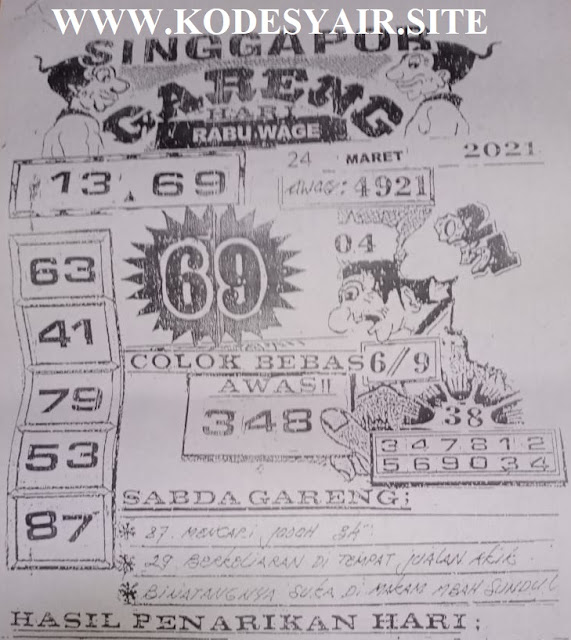 WWW.KODESYAIR.SITE
SINGGAPOR
GARENG
HARI
RABU WAGE
24 MARET 2021
13 69
AWAS: 4921
63
69
04
41
COLOK BEBAS 6/9
AWAS!!
79
348
38
347812
569034
53
SABDA GARENG;
87
* 87. MENCARI JODOH
* 29 BERKELIARAN DI TEMPAT JUALAN AKIK
* BINATANGNYA SUKA DI MAKAM MBAH SUNDUL
HASIL PENARIKAN HARI;